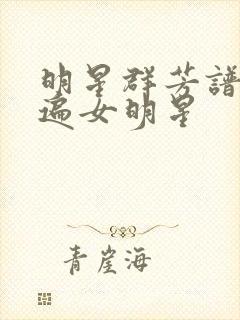 明星群芳譜
遍女明星
青崖海